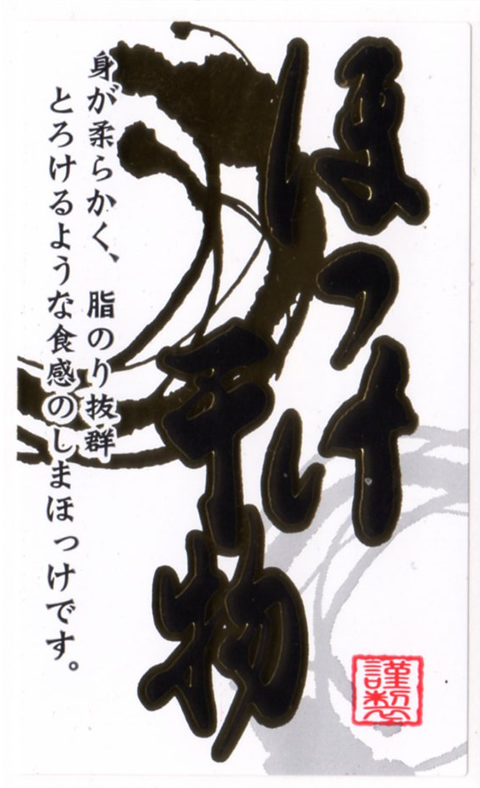 ほっけ
干物
身が柔らかく、脂のり抜群
とろけるような食感のしまほっけです。
謹製